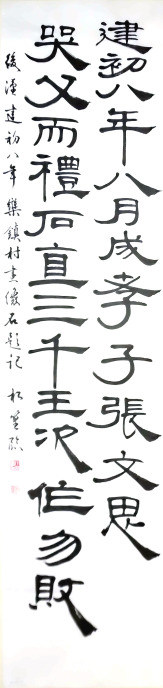 建初八年八月成孝子張文思
哭父而禮石直三千王次作勿敗
後漢建初八年欒鎮村畫像石題記